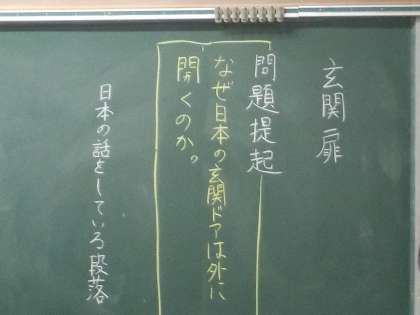 玄関扉
問題提起
なぜ日本の玄関ドアは外に
開くのか。
日本の話をしている段落